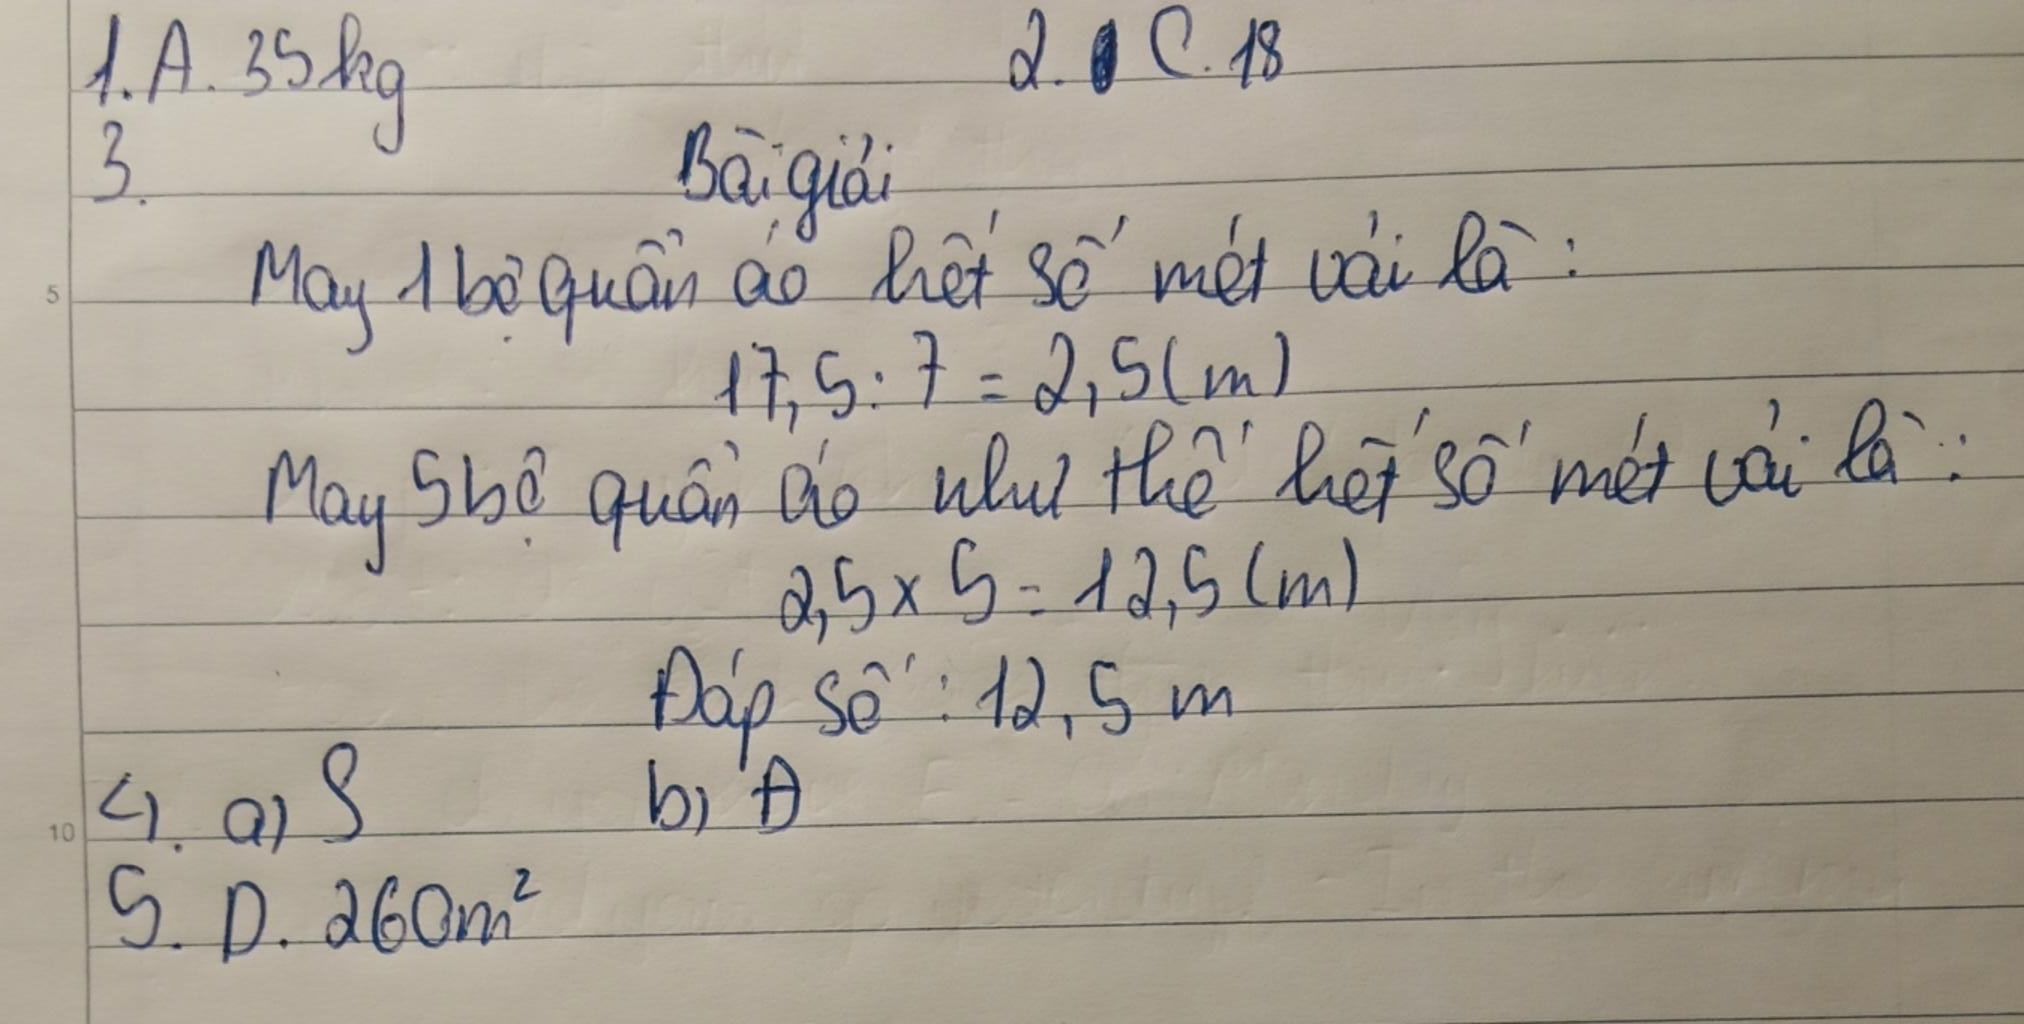 1. A. 35kg 2. C. 18
3. Bài giải
May 1 bộ quần áo hết số mét vải là:
17,5 : 7 = 2,5 (m)
May 5 bộ quần áo như thế hết số mét vải là:
2,5 x 5 = 12,5 (m)
Đáp số : 12,5 m
4. a) S b) Đ
5. D. 260m²
5
10